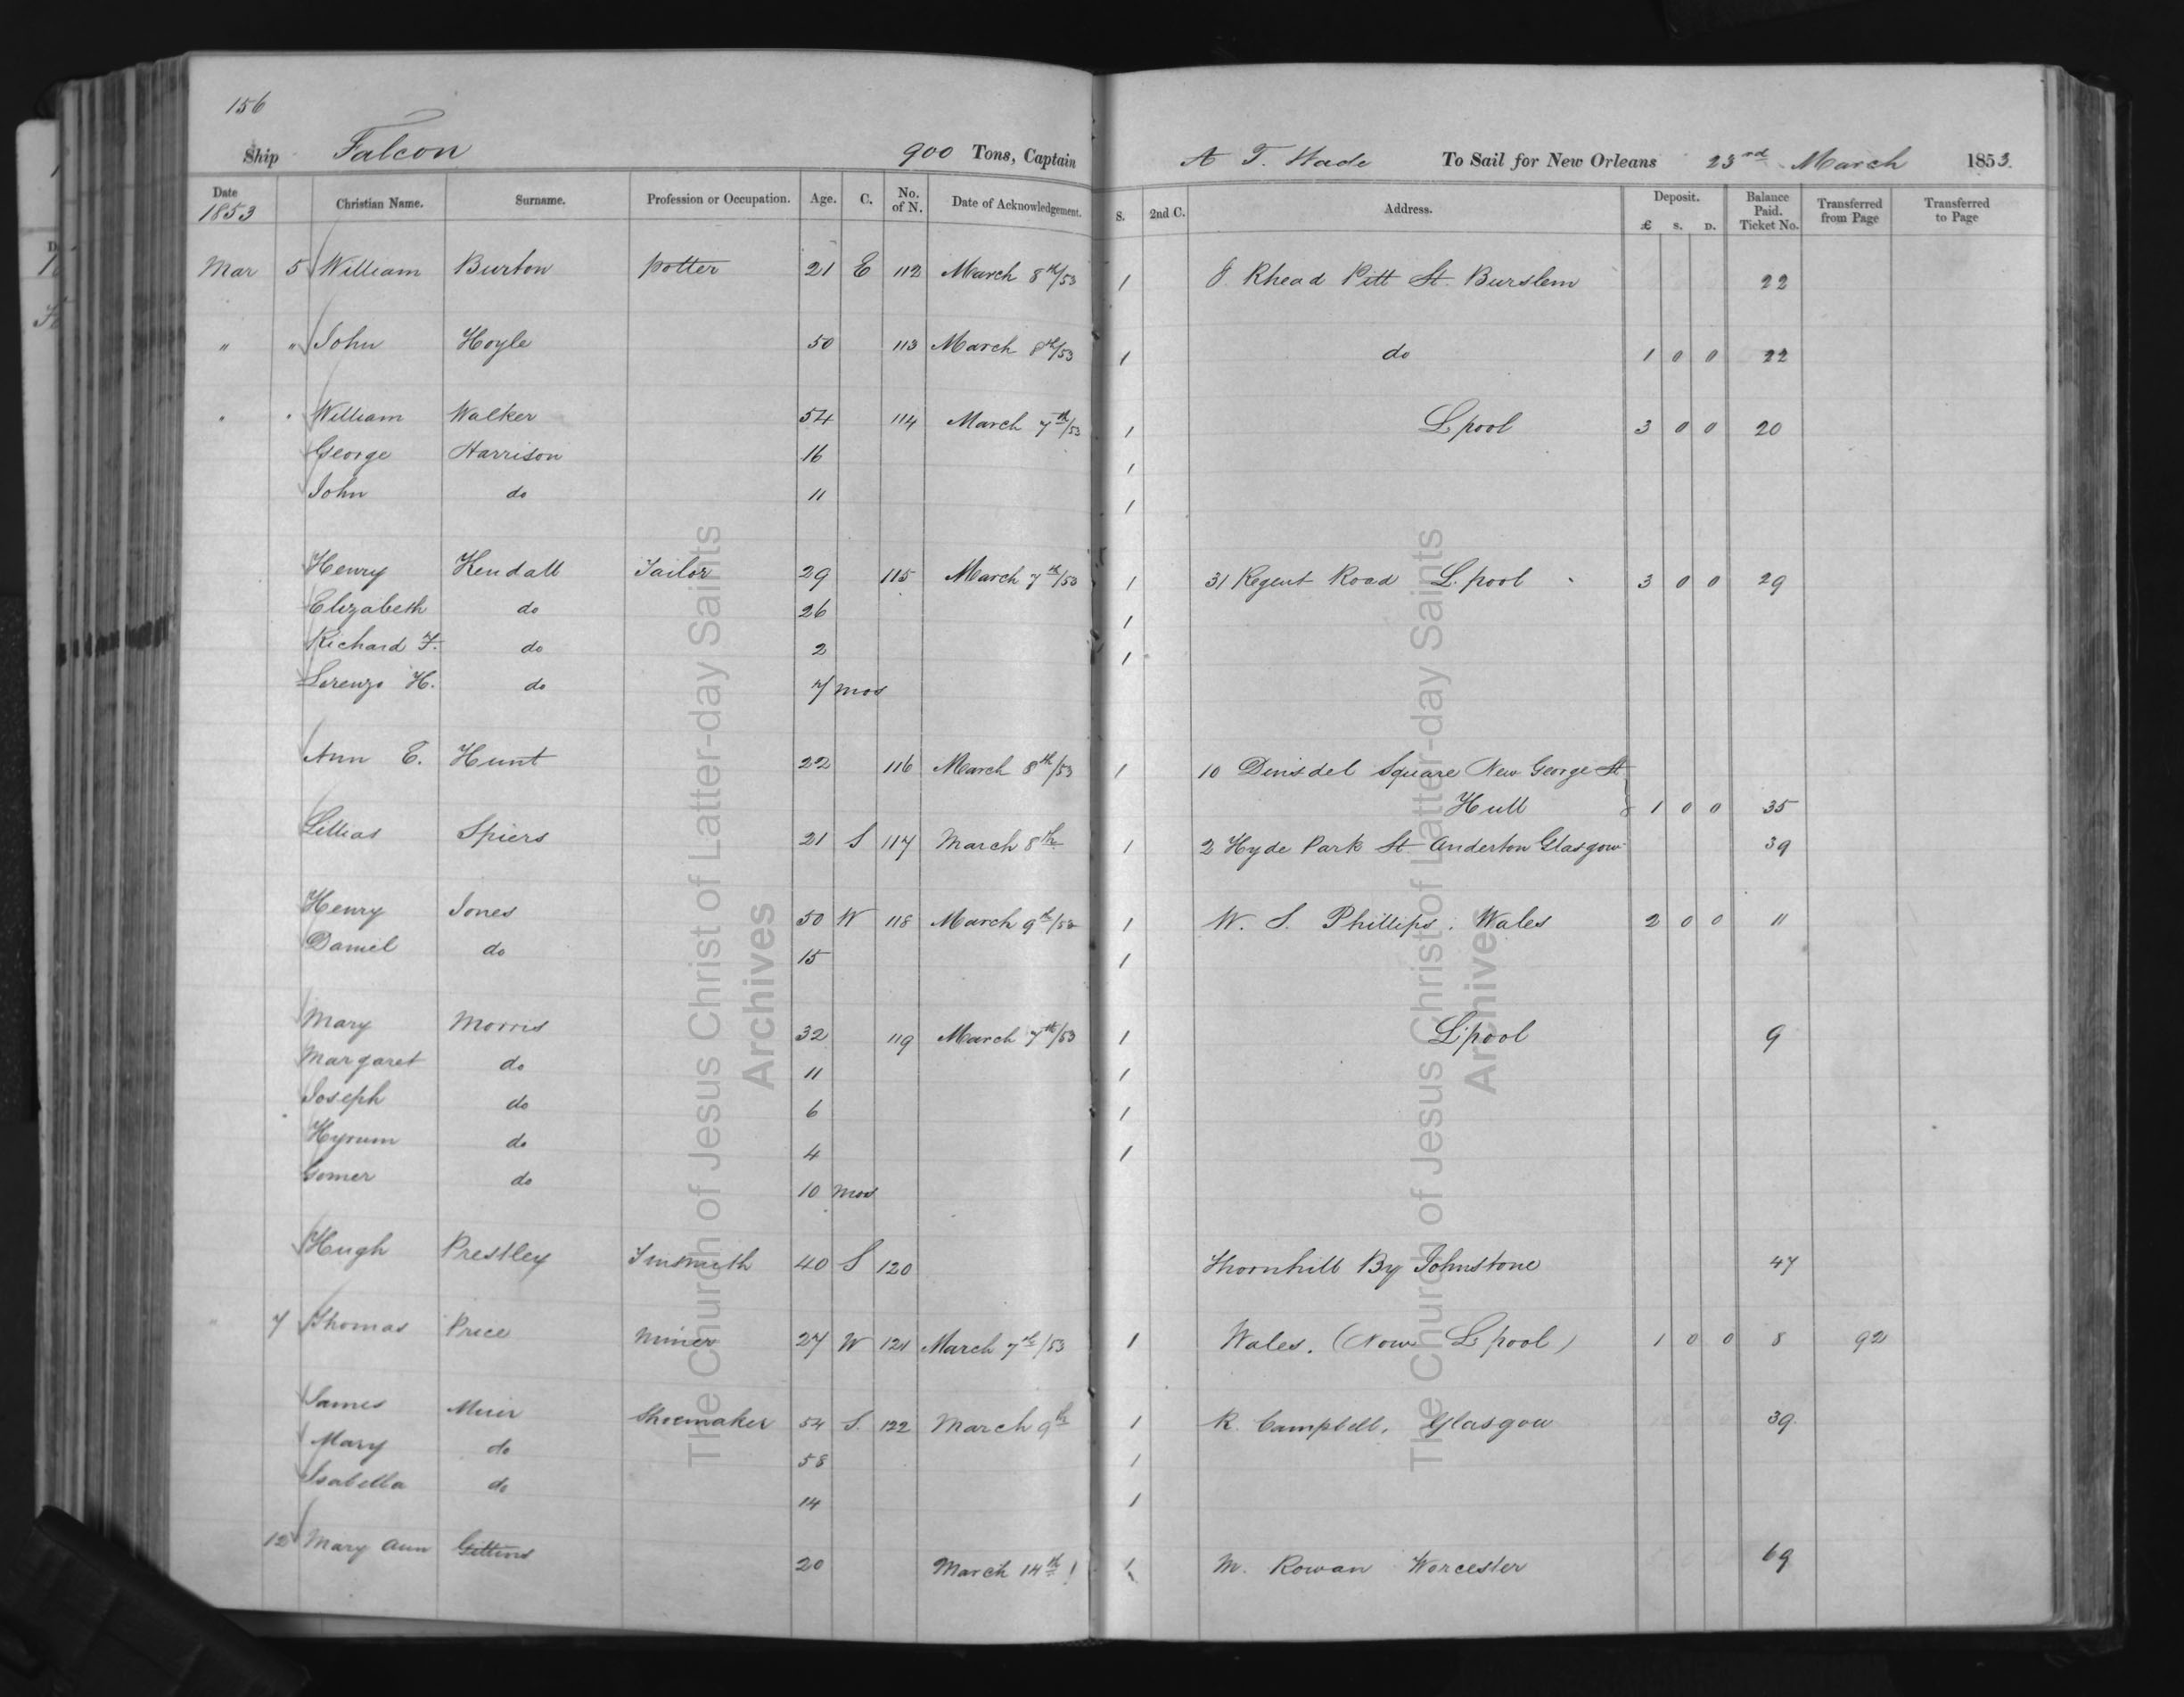 156
Ship Falcon 900 Tons, Captain A T. Wade To Sail for New Orleans 23rd March 1853.
Date 1853 Christian Name. Surname. Profession or Occupation. Age. C. No. of N. Date of Acknowledgement. S. 2nd C. Address. Deposit. £ S. D. Balance Paid. Ticket No. Transferred from Page Transferred to Page
Mar 5 William Burton potter 21 E 112 March 8th/53 1 J. Rhead Pitt St. Burslem 22
" " John Hoyle 50 113 March 8th/53 1 do 1 0 0 22
" " William Walker 54 114 March 7th/53 1 L.pool 3 0 0 20
George Harrison 16 1
John do 11 1
Henry Kendall Tailor 29 115 March 7th/53 1 31 Regent Road L.pool 3 0 0 29
Elizabeth do 26 1
Richard F. do 2 1
Lorenzo H. do 7 mos
Ann E. Hunt 22 116 March 8th/53 1 10 Dinsdel Square New George St
Hull 1 0 0 35
Lillias Spiers 21 S 117 March 8th 1 2 Hyde Park St Anderton Glasgow 39
Henry Jones 50 W 118 March 9th/53 1 W. S. Phillips. Wales 2 0 0 11
Daniel do 15 1
Mary Morris 32 119 March 7th/53 1 L.pool 9
Margaret do 11 1
Joseph do 6 1
Hyrum do 4 1
Gomer do 10 mos
Hugh Prestley Tinsmith 40 S 120 Thornhill By Johnstone 47
" 7 Thomas Price Miner 27 W 121 March 7th/53 1 Wales. (Now L.pool) 1 0 0 8 92
James Muir Shoemaker 54 S. 122 March 9th 1 R. Campbell, Glasgow 39
Mary do 58 1
Isabella do 14 1
12 Mary Ann Gittins 20 March 14th ! 1 M. Rowan Worcester 69
The Church of Jesus Christ of Latter-day Saints
Archives
The Church of Jesus Christ of Latter-day Saints
Archives